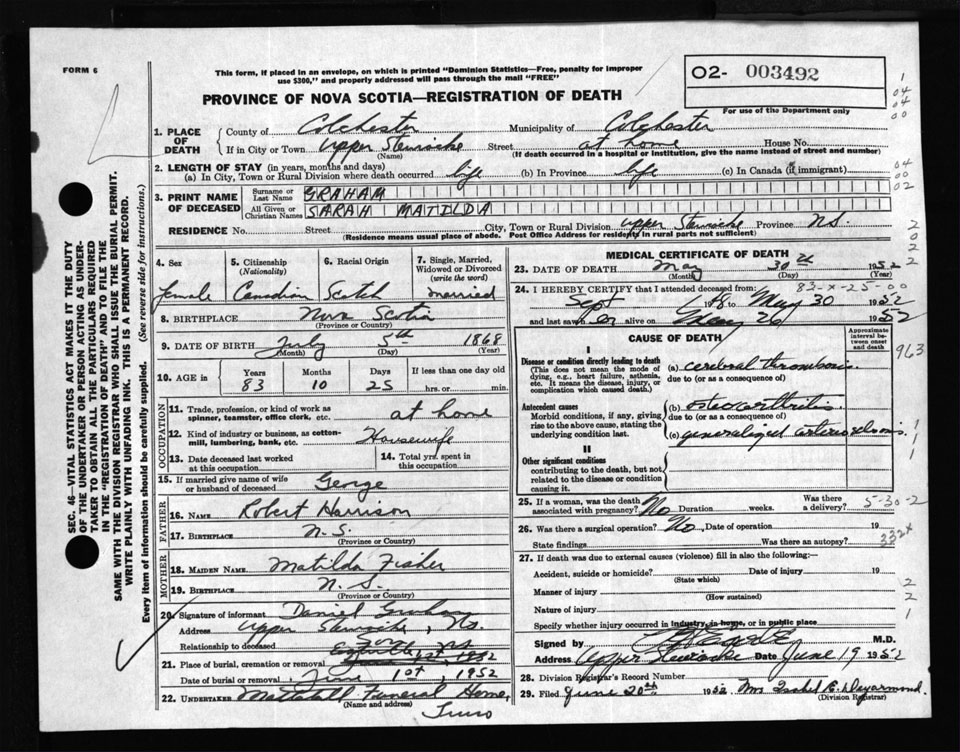 FORM 6
This form, if placed in an envelope, on which is printed "Dominion Statistics—Free, penalty for improper
use $300," and properly addressed will pass through the mail "FREE"
O2- 003492
For use of the Department only
PROVINCE OF NOVA SCOTIA—REGISTRATION OF DEATH
1. PLACE OF DEATH
County of Colchester Municipality of Colchester
If in City or Town Upper Stewiacke Street at home House No.
(Name) (If death occurred in a hospital or institution, give the name instead of street and number)
2. LENGTH OF STAY (in years, months and days)
(a) In City, Town or Rural Division where death occurred life (b) In Province life (c) In Canada (if immigrant)
3. PRINT NAME OF DECEASED
Surname or Last Name GRAHAM
All Given or Christian Names SARAH MATILDA
RESIDENCE No. Street City, Town or Rural Division Upper Stewiacke Province N.S.
(Residence means usual place of abode. Post Office Address for residents in rural parts not sufficient)
SEC. 46—VITAL STATISTICS ACT MAKES IT THE DUTY
OF THE UNDERTAKER OR PERSON ACTING AS UNDER-
TAKER TO OBTAIN ALL THE PARTICULARS REQUIRED
IN THE "REGISTRATION OF DEATH" AND TO FILE THE
SAME WITH THE DIVISION REGISTRAR WHO SHALL ISSUE THE BURIAL PERMIT.
WRITE PLAINLY WITH UNFADING INK. THIS IS A PERMANENT RECORD.
Every item of information should be carefully supplied. (See reverse side for instructions.)
4. Sex
female
5. Citizenship
(Nationality)
Canadian
6. Racial Origin
Scotch
7. Single, Married,
Widowed or Divorced
(write the word)
married
8. BIRTHPLACE Nova Scotia
(Province or Country)
9. DATE OF BIRTH July 5th 1868
(Month) (Day) (Year)
10. AGE in Years Months Days If less than one day old
83 10 25 hrs. or min.
OCCUPATION
11. Trade, profession, or kind of work as
spinner, teamster, office clerk, etc. at home
12. Kind of industry or business, as cotton-
mill, lumbering, bank, etc. Housewife
13. Date deceased last worked
at this occupation
14. Total yrs. spent in
this occupation
15. If married give name of wife
or husband of deceased George
FATHER
16. NAME Robert Harrison
17. BIRTHPLACE N.S.
(Province or Country)
MOTHER
18. MAIDEN NAME Matilda Fisher
19. BIRTHPLACE N.S.
(Province or Country)
20. Signature of informant Daniel Graham
Address Upper Stewiacke, N.S.
Relationship to deceased Son
21. Place of burial, cremation or removal
Date of burial or removal June 1st, 1952
22. UNDERTAKER Mattatall Funeral Home,
(Name and address)
Truro
MEDICAL CERTIFICATE OF DEATH
23. DATE OF DEATH May 30th 1952
(Month) (Day) (Year)
83-X-25-00
24. I HEREBY CERTIFY that I attended deceased from:
Sept 1948 May 30 1952
and last saw er alive on May 26 1952
CAUSE OF DEATH
Approximate interval between onset and death
I
Disease or condition directly leading to death
(This does not mean the mode of
dying, e.g., heart failure, asthenia,
etc. It means the disease, injury, or
complication which caused death.)
(a) cerebral thrombosis.
due to (or as a consequence of)
Antecedent causes
Morbid conditions, if any, giving
rise to the above cause, stating the
underlying condition last.
(b) osteoarthritis.
due to (or as a consequence of)
(c) generalized arteriosclerosis.
II
Other significant conditions
contributing to the death, but not
related to the disease or condition
causing it.
25. If a woman, was the death
associated with pregnancy? No Duration weeks. Was there
a delivery? 5-30-2
26. Was there a surgical operation? No Date of operation 19
State findings Was there an autopsy? 332X
27. If death was due to external causes (violence) fill in also the following:—
Accident, suicide or homicide? Date of injury 19
(State which)
Manner of injury
(How sustained)
Nature of injury
Specify whether injury occurred in industry, in home, or in public place
Signed by M.D.
Address Upper Stewiacke Date June 19 1952
28. Division Registrar's Record Number
29. Filed June 20th 1952 Mrs. Isabel C. Deyarmond.
(Division Registrar)
963